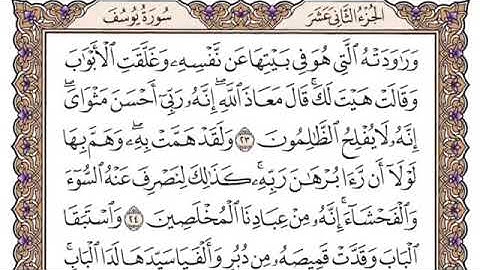 الجزء الثانى عشر
سورة يوسف
وَرَٰوَدَتْهُ ٱلَّتِى هُوَ فِى بَيْتِهَا عَن نَّفْسِهِۦ وَغَلَّقَتِ ٱلْأَبْوَٰبَ
وَقَالَتْ هَيْتَ لَكَ ۚ قَالَ مَعَاذَ ٱللَّهِ ۖ إِنَّهُۥ رَبِّىٓ أَحْسَنَ مَثْوَاىَ ۖ
إِنَّهُۥ لَا يُفْلِحُ ٱلظَّٰلِمُونَ ٢٣ وَلَقَدْ هَمَّتْ بِهِۦ ۖ وَهَمَّ بِهَا
لَوْلَآ أَن رَّءَا بُرْهَٰنَ رَبِّهِۦ ۚ كَذَٰلِكَ لِنَصْرِفَ عَنْهُ ٱلسُّوٓءَ
وَٱلْفَحْشَآءَ ۚ إِنَّهُۥ مِنْ عِبَادِنَا ٱلْمُخْلَصِينَ ٢٤ وَٱسْتَبَقَا
ٱلْبَابَ وَقَدَّتْ قَمِيصَهُۥ مِن دُبُرٍ وَأَلْفَيَا سَيِّدَهَا لَدَا ٱلْبَابِ ۚ